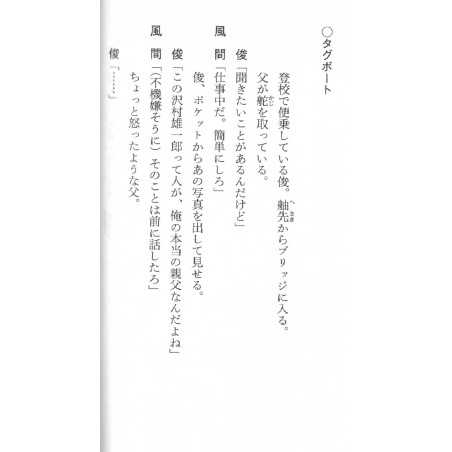 ○タグボート
登校で便乗している俊。舳先からブリッジに入る。
父が舵を取っている。
俊「聞きたいことがあるんだけど」
風間「仕事中だ。簡単にしろ」
俊、ポケットからあの写真を出して見せる。
俊「この沢村雄一郎って人が、俺の本当の親父なんだよね」
風間「(不機嫌そうに)そのことは前に話したろ」
ちょっと怒ったような父。
俊「……」